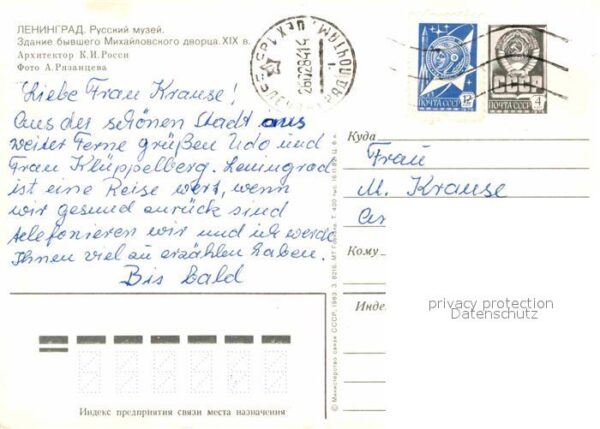 ЛЕНИНГРАД. Русский музей.
Здание бывшего Михайловского дворца. XIX в.
Архитектор К. И. Росси
Фото А. Рязанцева
Liebe Frau Krause!
Aus der schönen Stadt aus
weiter Ferne grüßen Udo und
Frau Klüppelberg. Leningrad
ist eine Reise wert, wenn
wir gesund zurück sind
telefonieren wir und ich werde
Ihnen viel zu erzählen haben.
Bis bald
СССР
ПОЧТАМТ
12к
ПОЧТА СССР
СССР
ПОЧТА СССР
4
Куда
Frau
M. Krause
Кому
Индекс
privacy protection
Datenschutz
© Министерство связи СССР, 1983.
Индекс предприятия связи места назначения